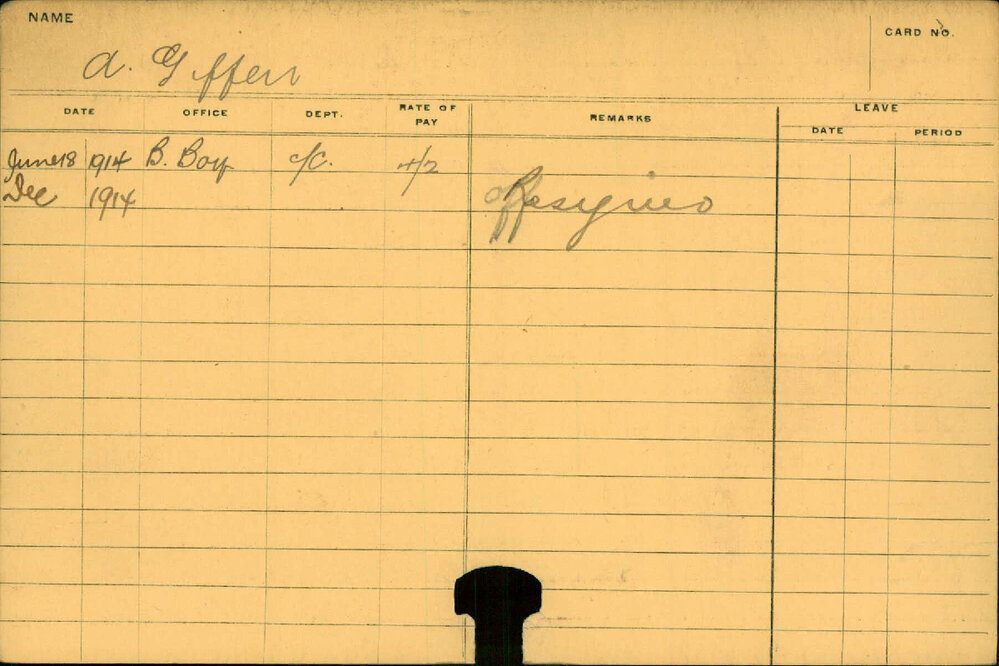 NAME
CARD NO.
A. Giffen
DATE OFFICE DEPT. RATE OF PAY REMARKS LEAVE
DATE PERIOD
June 18 1914 B. Boy c/C. 4/2
Dec 1914 Resigned